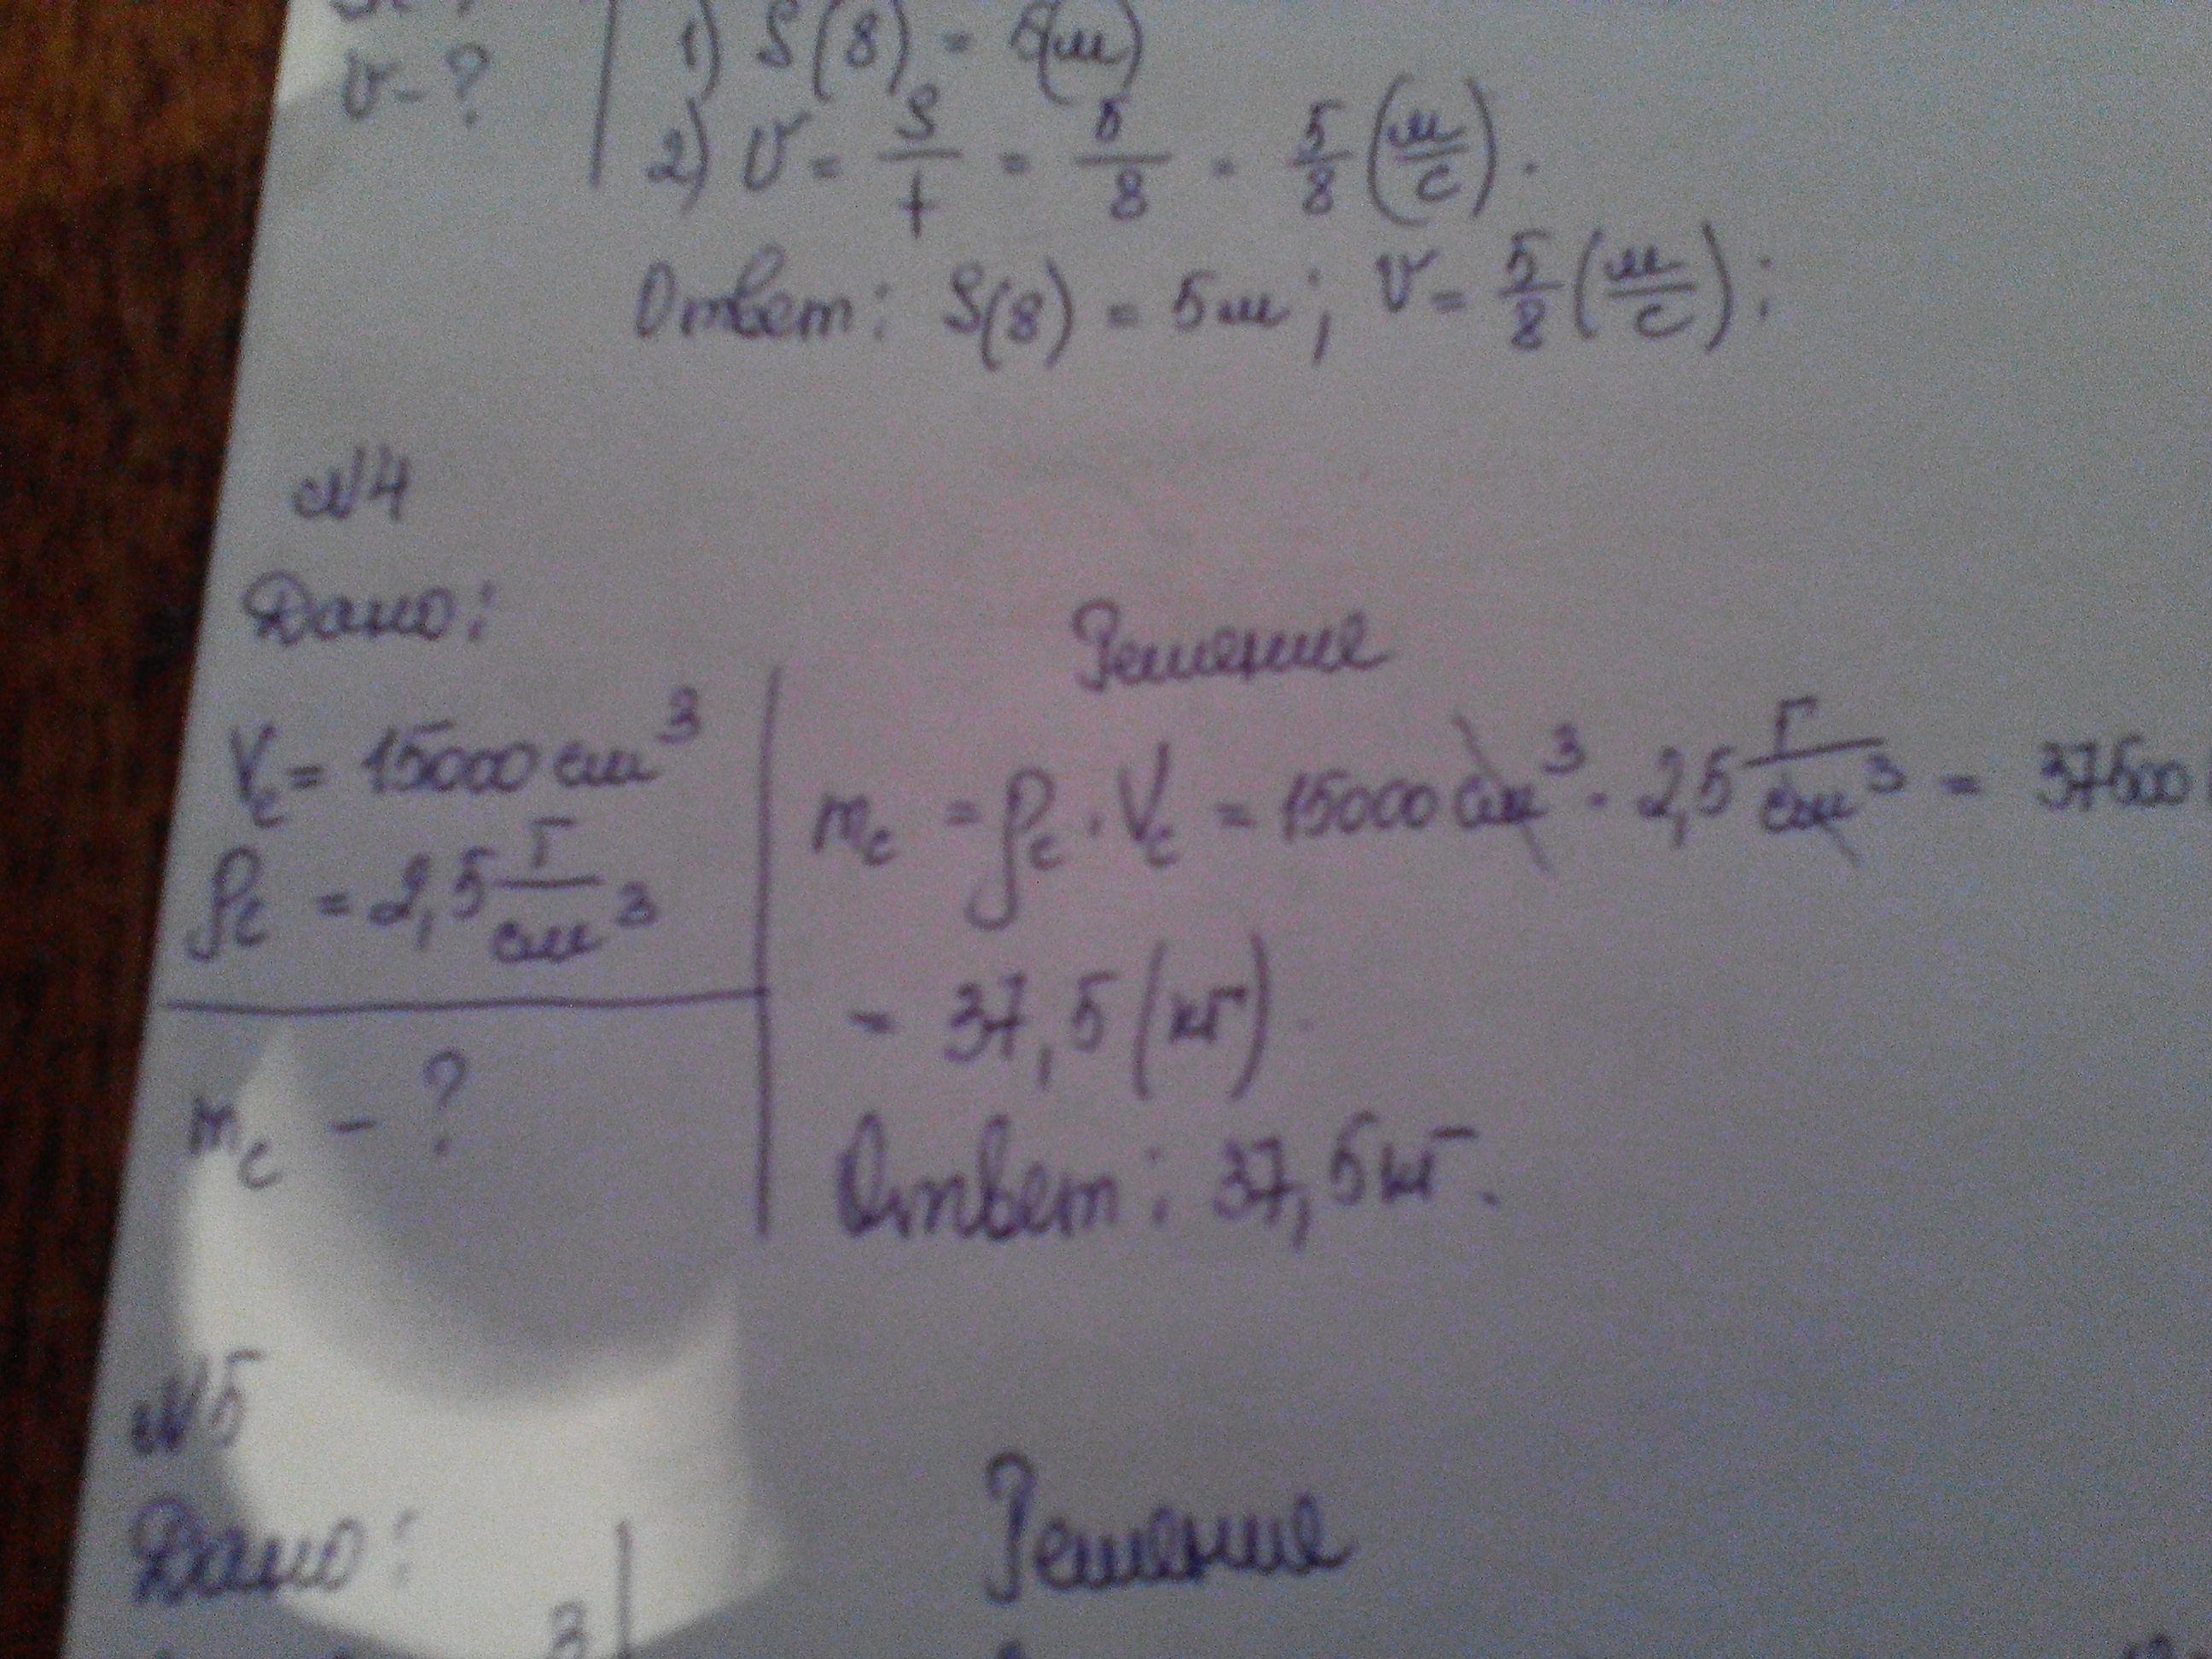 v - ?
1) S(8) = 5(м)
2) v = S/t = 5/8 = 5/8 (м/с).
Ответ: S(8) = 5м; v = 5/8 (м/с);
№4
Дано:
Решение
Vс = 15000 см³
ρс = 2,5 г/см³
mс - ?
mс = ρс · Vс = 15000 см³ · 2,5 г/см³ = 37500
= 37,5 (кг).
Ответ: 37,5 кг.
№5
Дано:
Решение
3